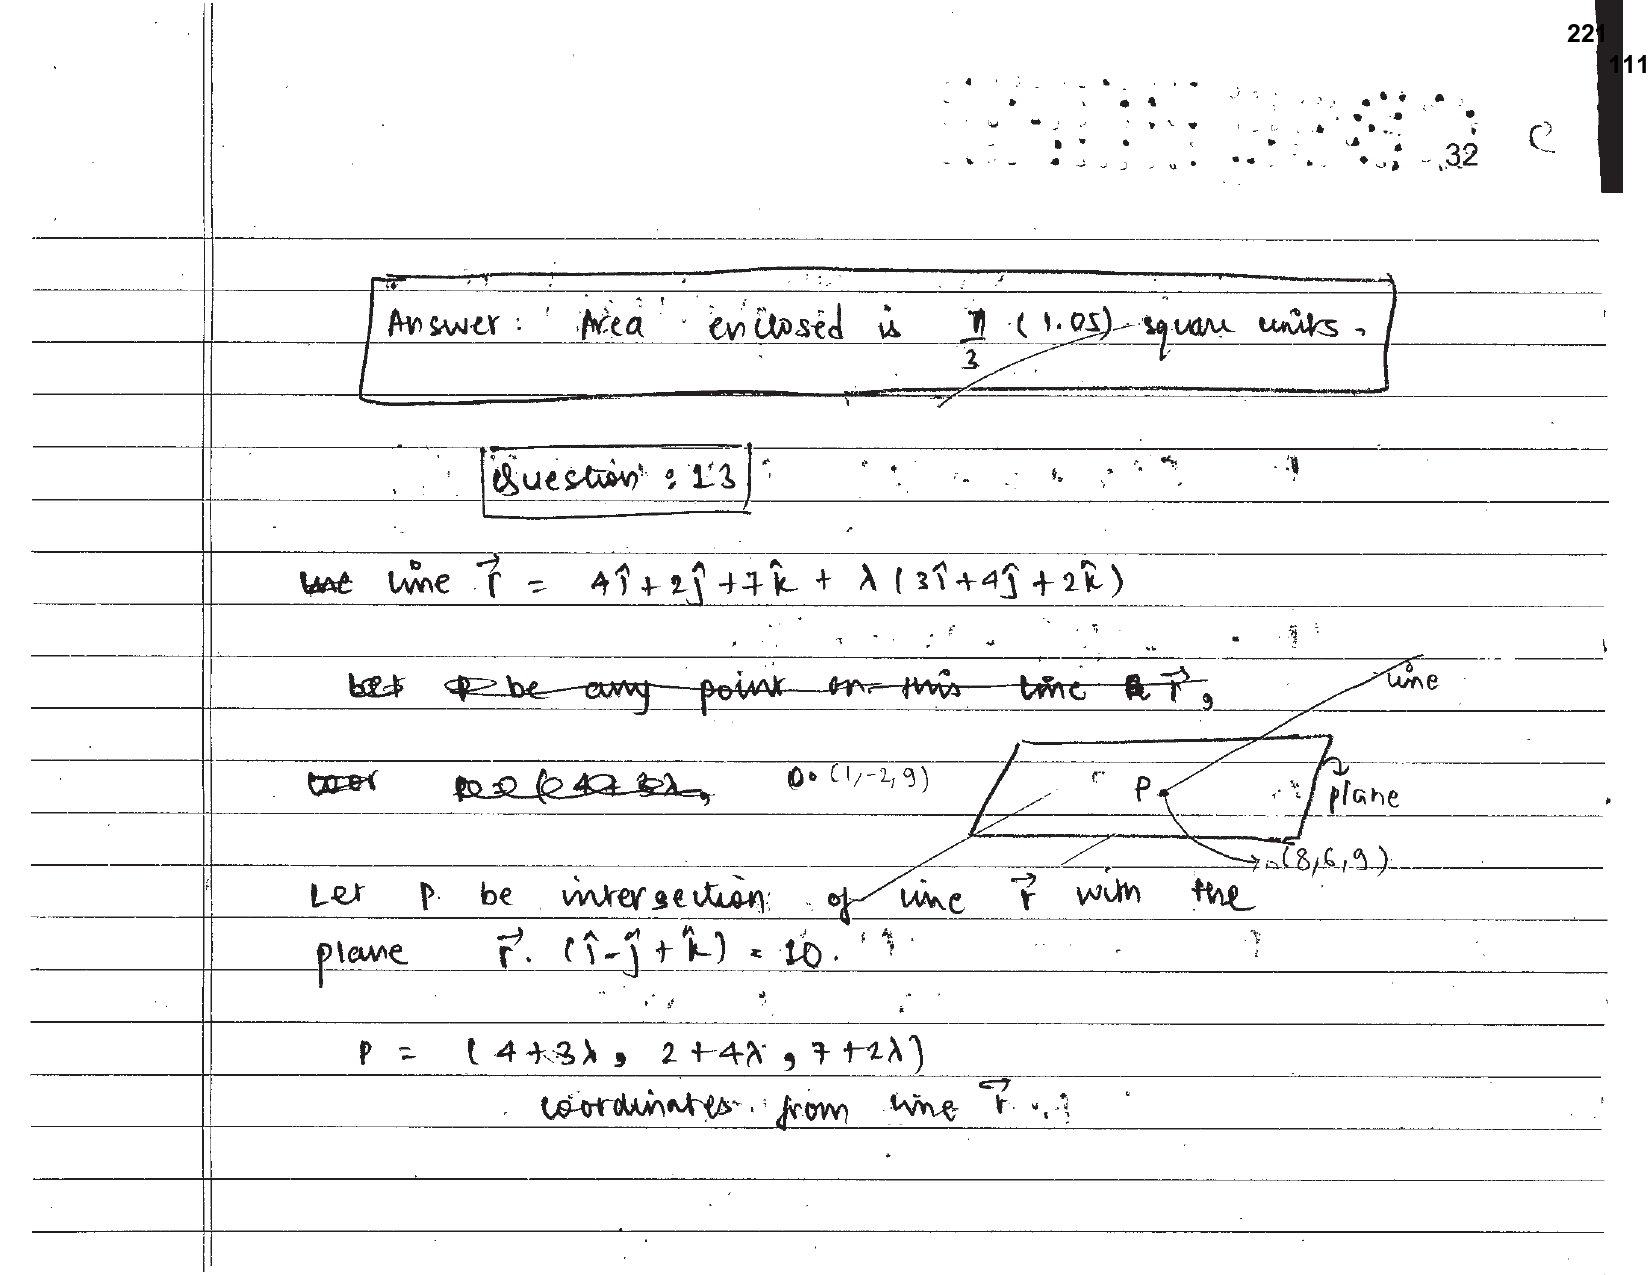 221
111
32
Answer: Area enclosed is π/3 (1.05) square units.
Question : 13
line r⃗ = 4î + 2ĵ + 7k̂ + λ (3î + 4ĵ + 2k̂)
let P be any point on this line r⃗,
line
(1,-2,9)
P
plane
(8,6,9)
Let P be intersection of line r⃗ with the
plane r⃗. (î - ĵ + k̂) = 10.
P = (4+3λ, 2+4λ, 7+2λ)
coordinates from line r⃗.